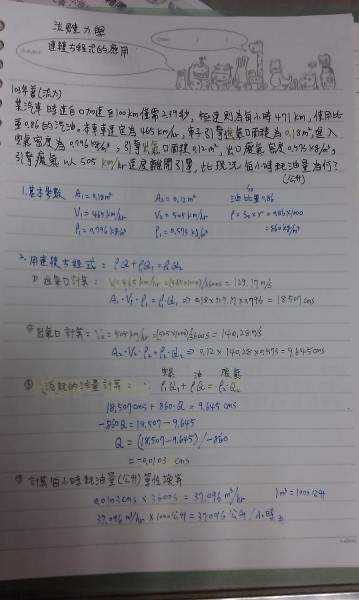 流體力學
連續方程式的應用
Date
Subject
103年普(流力)
某汽車時速自0加速至100km僅需2.39秒，極速則為每小時431km，使用比
重0.86的汽油。本車車速定為465km/hr，車子引擎進氣口面積為0.18m²，進入
空氣密度為0.796kg/m³，引擎出氣口面積0.12m²，出口廢氣密度0.573kg/m³，
引擎廢氣以505 km/hr速度離開引擎，此現況每小時耗油量為何？
(公升)
1.基本參數 A₁=0.18m² A₂=0.12m² 油比重0.86
V₁=465km/hr V₂=505km/hr ρ=S₀×r=0.86×1000
ρ₁=0.796kg/m³ ρ₂=0.573kg/m³ =860kg/m³
2.用連續方程式：ρQ+ρ₁Q₁=ρ₂Q₂
① 進氣口計算：V₁=465km/hr=(465×1000)/3600s=129.17m/s
A₁·V₁·ρ₁=ρ₁Q₁⇒0.18×129.17×0.796=18.507cms
②出氣口計算：V₂=505km/hr=(505×1000)/3600s=140.28m/s
A₂·V₂·ρ₂=ρ₂·Q₂⇒0.12×140.28×0.573=9.645cms
空氣 油 廢氣
③ 消耗的油量計算：ρ₁Q₁+ρQ=ρ₂·Q₂
18.507cms+860·Q=9.645cms
-860Q=18.507-9.645
Q=(18.507-9.645)/-860
=-0.0103 cms
④ 計算每小時耗油量(公升)單位換算
0.0103cms×3600s=37.096m³/hr 1m³=1000公升
37.096m³/hr×1000公升=37096公升/小時#